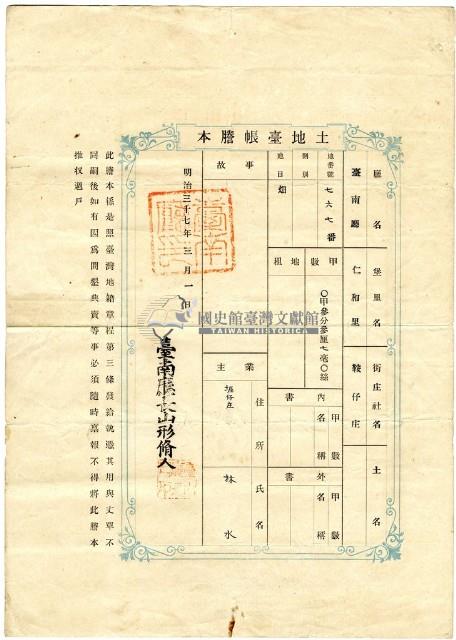 土地臺帳謄本
廳名 堡里名 街庄社名 土名
臺南廳 仁和里 鞍仔庄
地番號 七六七番
則別
地目 畑
甲數 〇甲參分參厘七毫〇絲
地租
內書 甲數 名稱
外書 甲數 名稱
事故
業主
住所 氏名
林水
明治三十七年三月一日
臺南廳長山形脩人
此謄本係是照臺灣地籍章程第三條發給就
其用與丈單不
同嗣後如有因為
典賣等事必須隨時
報不得將此謄本
推收過戶
國史館臺灣文獻館
TAIWAN HISTORICA